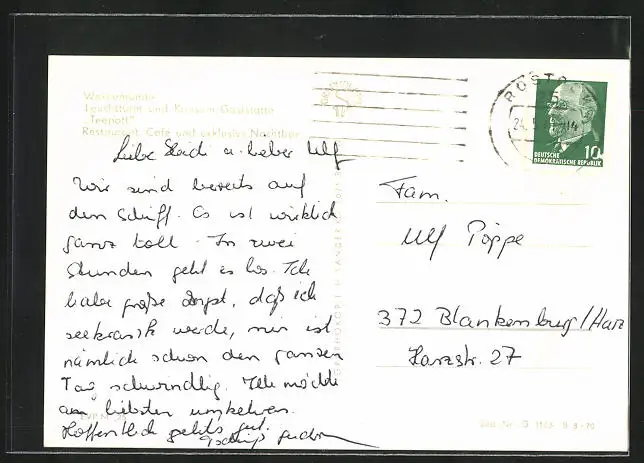 Warnemünde
Leuchtturm und Konsum-Gaststätte
„Teepott"
Restaurant, Café und exklusive Nachtbar
Liebe u. lieber Ulf
Wir sind bereits auf
dem Schiff. Es ist wirklich
ganz toll. In zwei
Stunden geht es los. Ich
habe große Angst, daß ich
seekrank werde, mir ist
nämlich schon den ganzen
Tag schwindlig. Ich möchte
am liebsten umkehren.
Hoffentlich gehts gut.
Fam.
Ulf Pöppe
372 Blankenburg/Harz
Harzstr. 27
ROSTO
24.5
14
DEUTSCHE
DEMOKRATISCHE REPUBLIK
10